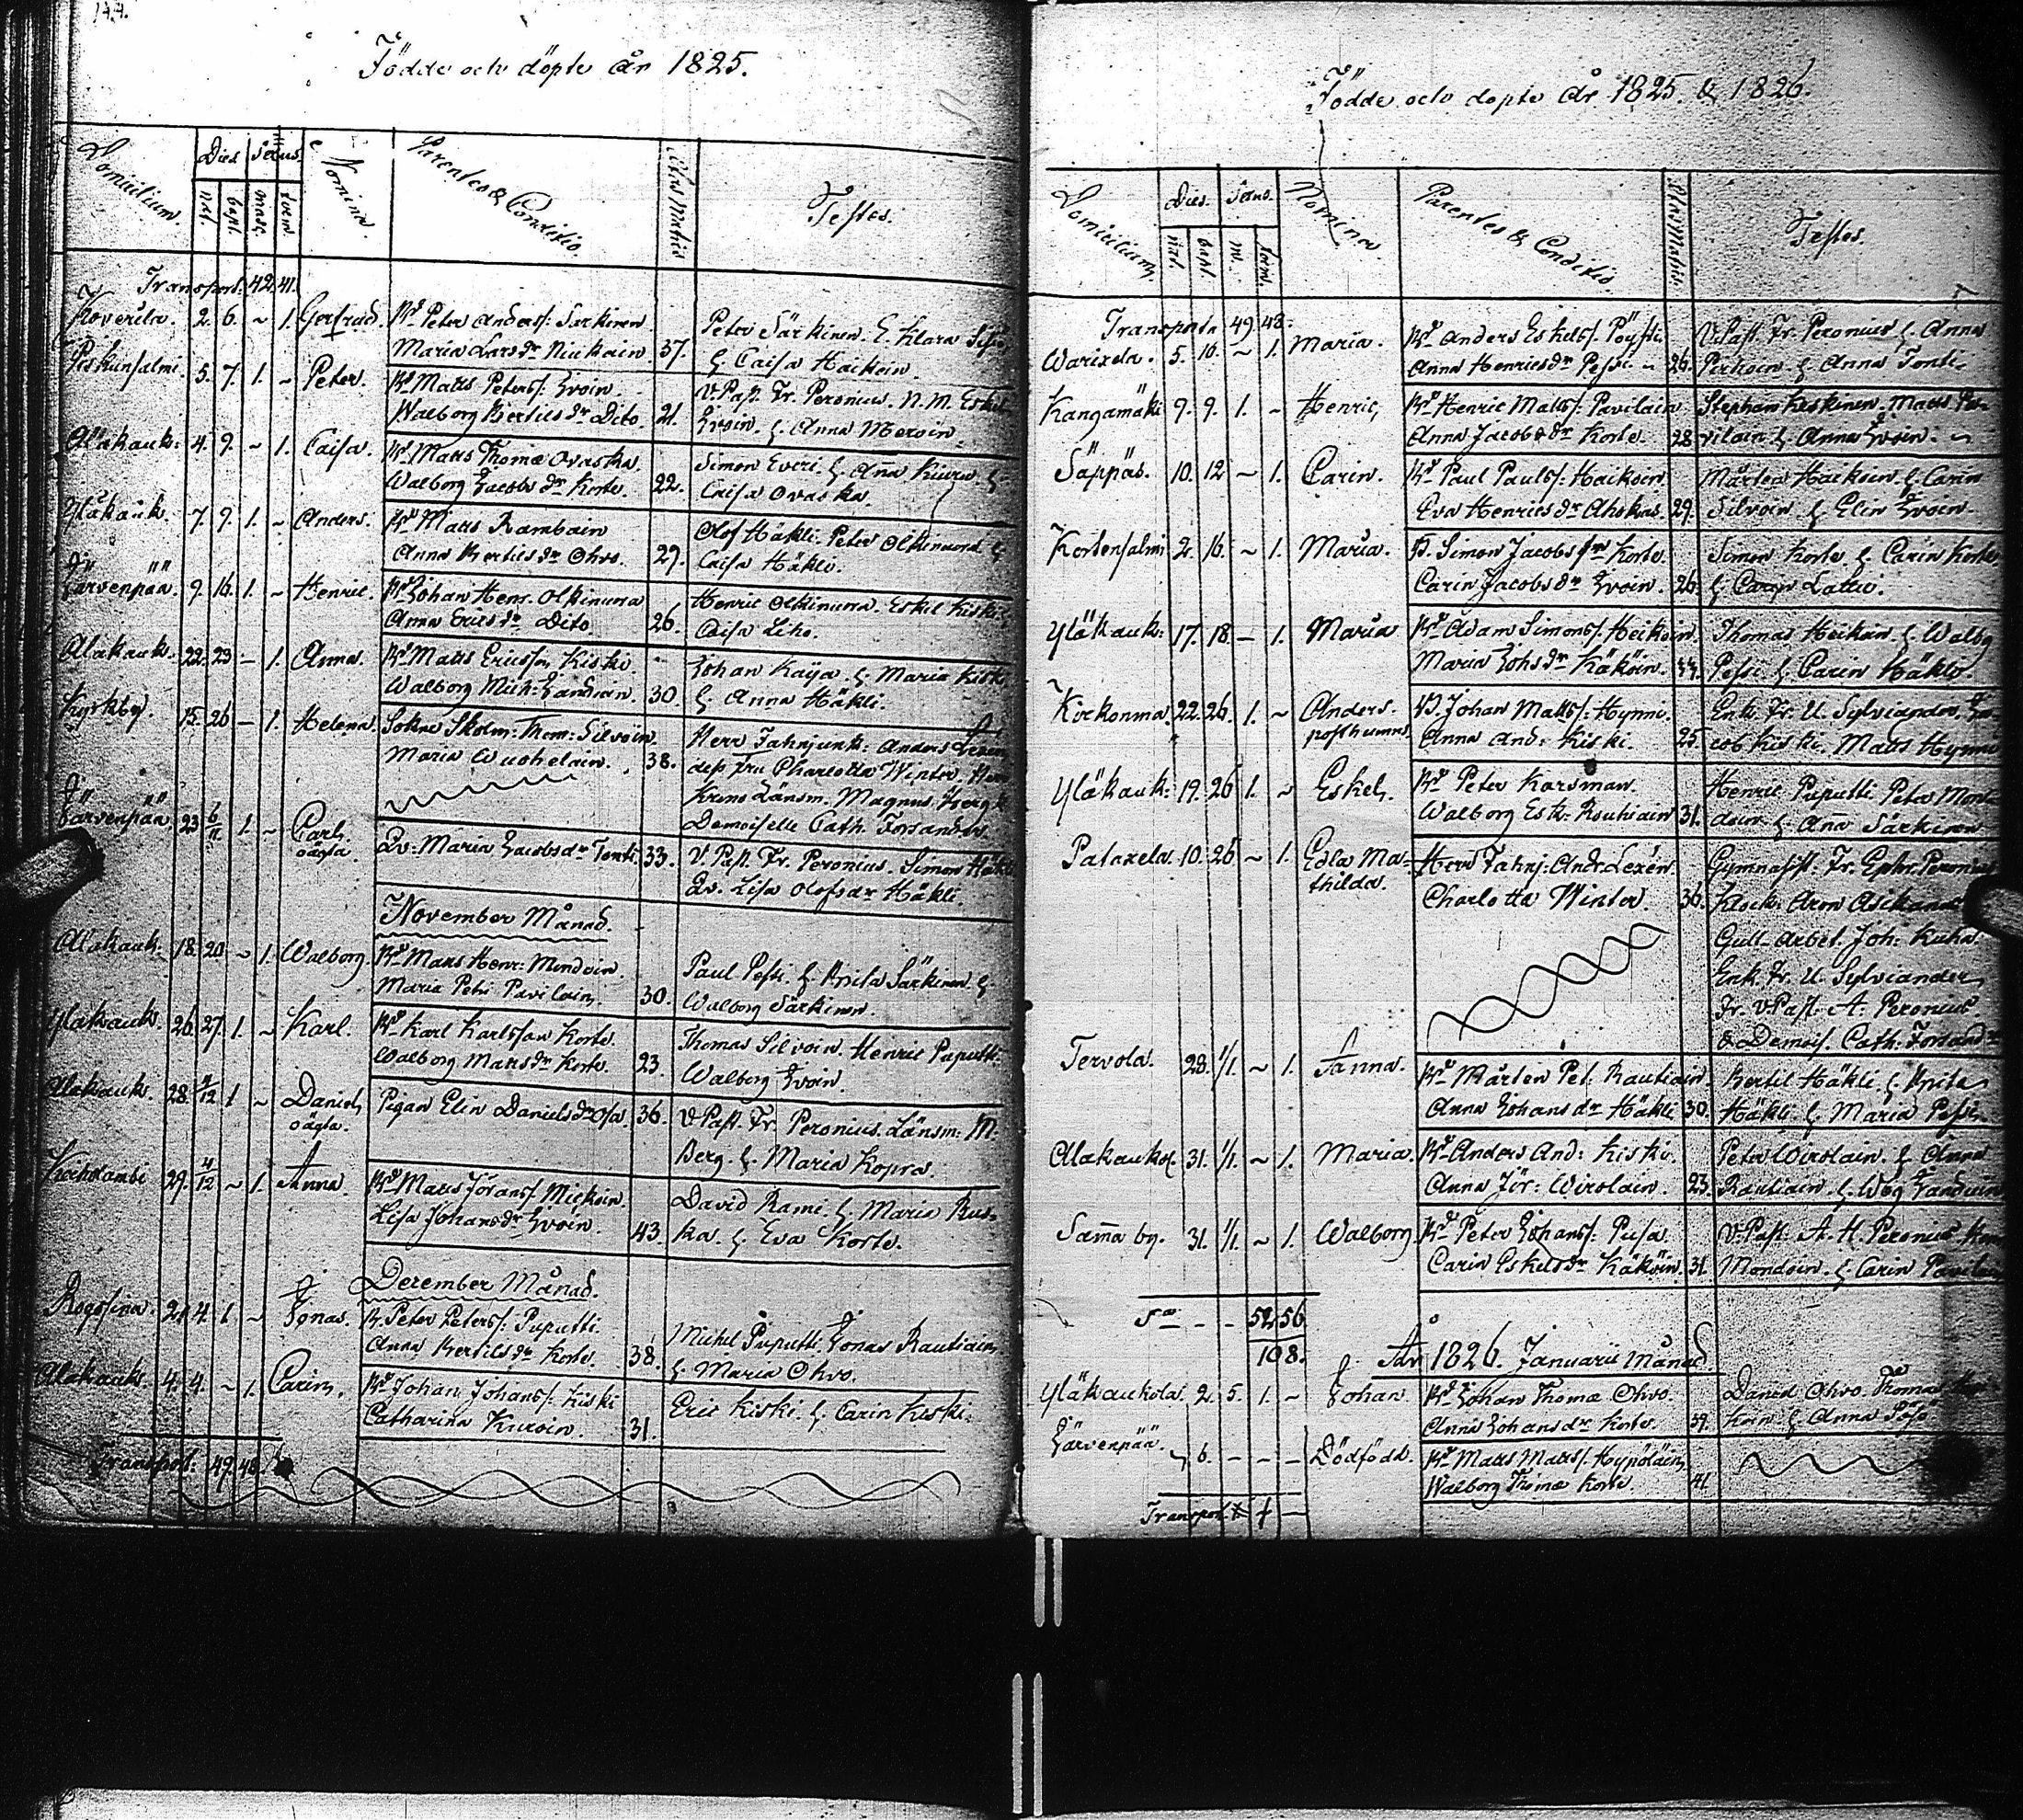 144.
Födde och döpte år 1825.
Domicilium. Dies nat. bapt. Sexus. masc. foem. Nomina. Parentes & Conditio. Ætas Matris Testes.
Transport: 42. 41.
Koverila. 2. 6. ~ 1. Gertrud. Bd Peter Anders: Särkinen
Maria Larsdr Niukain 37. Peter Särkinen. H. Klara
H. Caisa Haikoin.
Piskunsalmi. 5. 7. 1. ~ Peter. Bd Matts Peters: Ivoin
Walborg Bertils dr Dito 21. V. Past. Fr. Peronius. N. M. Eskel
Ivoin. H. Anna Meroin.
Aläkauk: 4. 9. ~ 1. Caisa. Bd Matts Thomæ Ovaska
Walborg Jacobs dr Korte. 22. Simon Everi. H. Anna Kiuru H.
Caisa Ovaska.
Yläkauk. 7. 9. 1. ~ Anders. Bd Matts Rambain
Anna Bertils dr Ohvo. 27. Olof Häkli. Peter Olkinuora H.
Caisa Häkli.
Järvenpää. 9. 16. 1. ~ Henric. Bd Johan Henr. Olkinuora
Anna Erics dr Dito. 26. Henric Olkinuora. Eskil Kiski
Caisa Liho.
Alakauk. 22. 23. – 1. Anna. Bd Matts Ericsson Kiski
Walborg Mich: Jandian. 30. Johan Kaija. H. Maria Kiski
H. Anna Häkli.
Kyrkby. 15. 26 – 1. Helena. Sokne Skolm: Thom: Silvoin.
Maria Wuohelain. 38. Herr Fahnjunk: Anders Lexen
dess fru Charlotta Winter. Herr
Krono Länsm. Magnus Berg &
Demoiselle Cath. Forsander.
Järvenpää 23 6/11 1. ~ Carl
oägta. Qv: Maria Jacobs dr Tonti 33. V. Past. Fr. Peronius. Simon Häkli
Qv. Lisa Olofs dr Häkli.
November Månad.
Alakauk. 18. 20. ~ 1. Walborg. Bd Matts Henr: Mondoin.
Maria Petri Pavilain. 30. Paul Pessi. H. Brita Särkinen. H.
Walborg Särkinen.
Yläkauk. 26. 27. 1. ~ Karl. Bd Karl Karlsson Korte.
Walborg Mattsdr Korte. 23. Thomas Silvoin. Henric Puputti.
Walborg Ivoin.
Alakauk. 28. 4/12 1 ~ Daniel
oägta. Pigan Elin Danielsdr Osa. 36. V. Past. Fr. Peronius. Länsm: M.
Berg. H. Maria Kopra.
29. 4/12 ~ 1. Anna. Bd Matts Jörans: Mickoin.
Lisa Johansdr Ivoin. 43. David Rami. H. Maria Rus-
ka. H. Eva Korte.
December Månad.
Rogosina. 2. 4. 1 ~ Jonas. B. Peter Peters: Puputti.
Anna Bertils dr Korte. 38. Michel Puputti. Jonas Rautiain
H. Maria Ohvo.
Alakauk. 4. 4. ~ 1. Carin. Bd Johan Johans: Kiski
Catharina Kuroin. 31. Eric Kiski. H. Carin Kiski.
Transport: 49. 48.
Födde och döpte år 1825. & 1826.
Domicilium Dies. nat. bapt. Sexus. m. foem. Nomina Parentes & Conditio. Ætas Matris Testes.
Transporta 49. 48.
Warixela. 5. 16. ~ 1. Maria. Bd Anders Eskels: Pöysti
Anna Henricsdr Pessi ~ 26. V. Past. Fr. Peronius H. Anna
Pirhoin. H. Anna Tonti.
Kangamäki 9. 9. 1. ~ Henric Bd Henric Matts: Pavilain
Anna Jacobs dr Korte. 28 Stephan Keskinen. Matts Pa-
vilain H. Anna Ivoin.
Säppäs. 10. 12 ~ 1. Carin. Bd Paul Pauls: Haikoin
Eva Henrics dr Ahokas. 29. Mårten Haikoin. H. Carin
Silvoin. H. Elin Ivoin.
Kortensalmi 2. 16. ~ 1. Maria. B. Simon Jacobs son Korte.
Carin Jacobs dr Ivoin. 26. Simon Korte. H. Carin Korte
H. Carin Lattu.
Yläkauk: 17. 18. – 1. Maria Bd Adam Simons: Heikoin
Maria Johs dr Käköin. Thomas Heikoin. H. Walbg
Pessi. H. Carin Häkli.
Kirkonma 22. 26. 1. ~ Anders.
posthumus. B. Johan Matts: Hynni.
Anna And: Kiski. 25. Enk. Fr. U. Sylviander. Ja-
cob Kiski. Matts Hynni
Yläkauk: 19. 26 1. ~ Eskel. Bd Peter Karsman.
Walborg Esk: Rautiain 31. Henric Puputti Peter Mon-
doin. H. Anna Särkinen
Pataxela. 10. 26 ~ 1. Edla Ma-
thilda. Herr Fahnj: And. Lexén
Charlotta Winter. 36. Gymnasist. Fr. Ephr. Peronius
Klock: Aron Asikanus
Gull-arbet. Joh: Kuha
Enk. Fr. U. Sylviander
Fr. V. Past. A. Peronius.
& Demois. Cath. Forsander
Tervola. 28. 1/1. ~ 1. Anna. Bd Mårten Pet: Rautiain
Anna Johans dr Häkli 30. Bertil Häkli. H. Brita
Häkli. H. Maria Pessi.
Alakaukol. 31. 1/1. ~ 1. Maria. Bd Anders And: Kiski.
Anna Jör: Wirolain. 23. Peter Wirolain. H. Anna
Rautiain. H. Wbg Jandian
Samma by. 31. 1/1. ~ 1. Walborg. Bd Peter Johans: Pusa.
Carin Eskels dr Käköin. 31. V. Past. A. H. Peronius
Mondoin. H. Carin Pavilain
Sa - - 52. 56.
108.
År 1826. Januarii Månad.
Yläkaukola 2. 5. 1. ~ Johan Bd Johan Thomæ Ohvo.
Anna Johans dr Korte. 39. Daniel Ohvo. Thomas
H. Anna
Järvenpää. 6. – – – Dödfödd. Bd Matts Matts: Hypöläin
Walborg Thomæ Korte 41
Transport 1 –